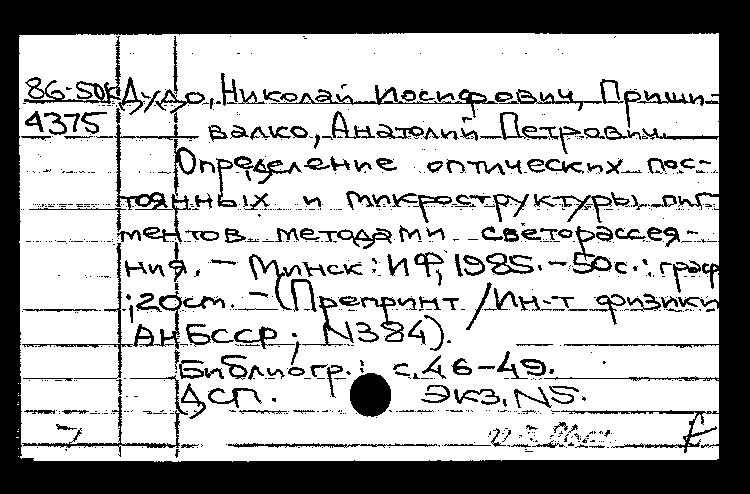 86-50к Дудо, Николай Иосифович, Приши-
4375 валко, Анатолий Петрович.
Определение оптических пос-
тоянных и микроструктуры пиг-
ментов методами светорассея-
ния. - Минск: ИФ, 1985. - 50с.: граф
; 20см. - (Препринт / Ин-т физики
АН БССР; N384).
Библиогр.: с.46-49.
ДСП. Экз. N5.